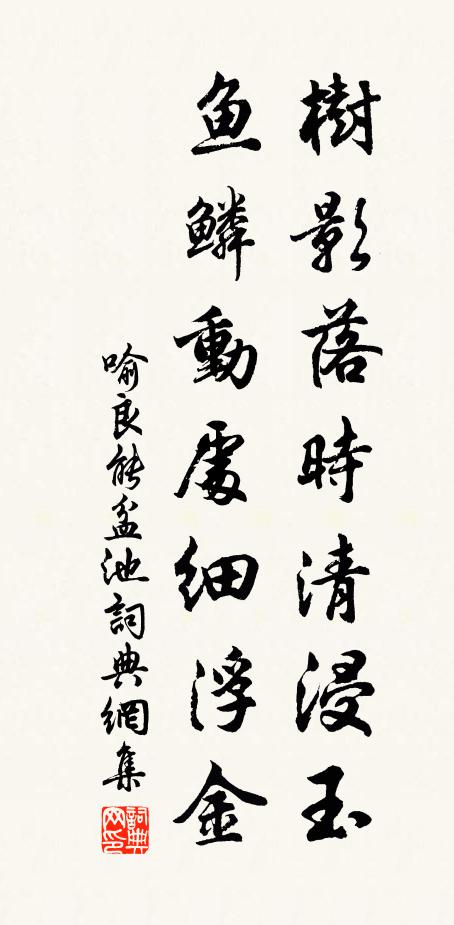 樹影落時清浸玉
魚鱗動處細浮金
喻良能盆池詞典網集
詞典网印